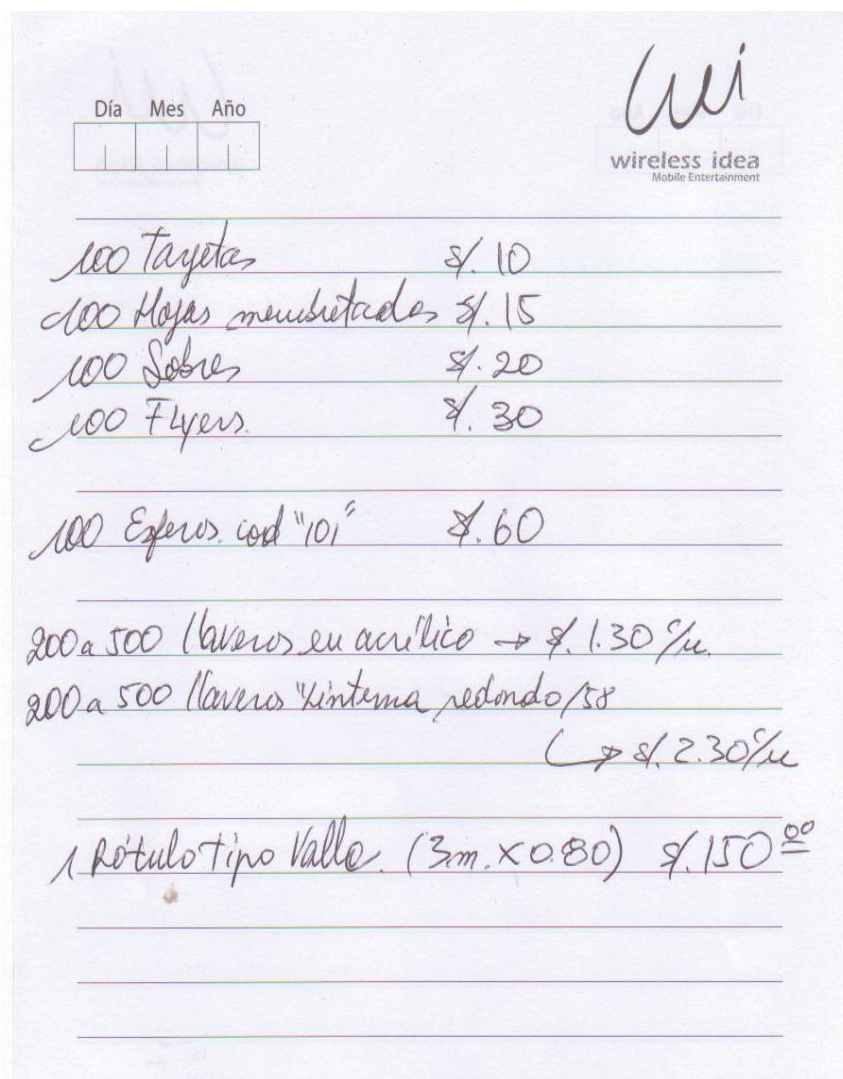 Día Mes Año
wi
wireless idea
Mobile Entertainment
100 Tarjetas S/. 10
100 Hojas membretadas S/. 15
100 Sobres S/. 20
100 Flyers. S/. 30
100 Esferos. cod "101" S/. 60
200 a 500 llaveros en acrílico → S/. 1.30 c/u.
200 a 500 llaveros "Linterna redondo/58
↳ S/. 2.30 c/u
1 Rótulo tipo Valla. (3m. x 0.80) S/. 150 00